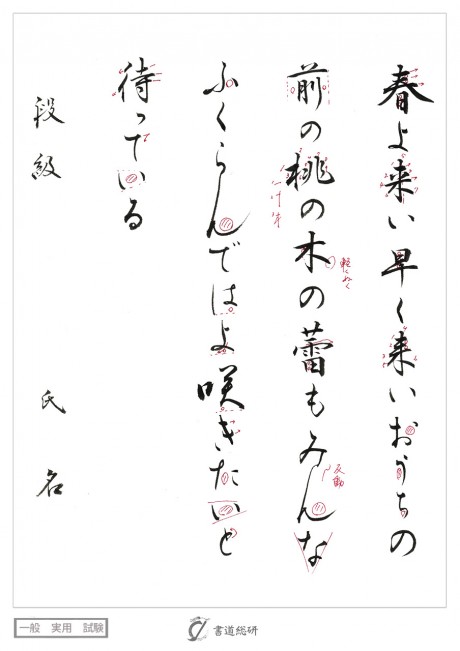 春よ来い早く来いおうちの
前の桃の木の蕾もみんな
ふくらんではよ咲きたいと
待っている
段級 氏名
一行本
軽くぬく
反動
一般 実用 試験
書道総研